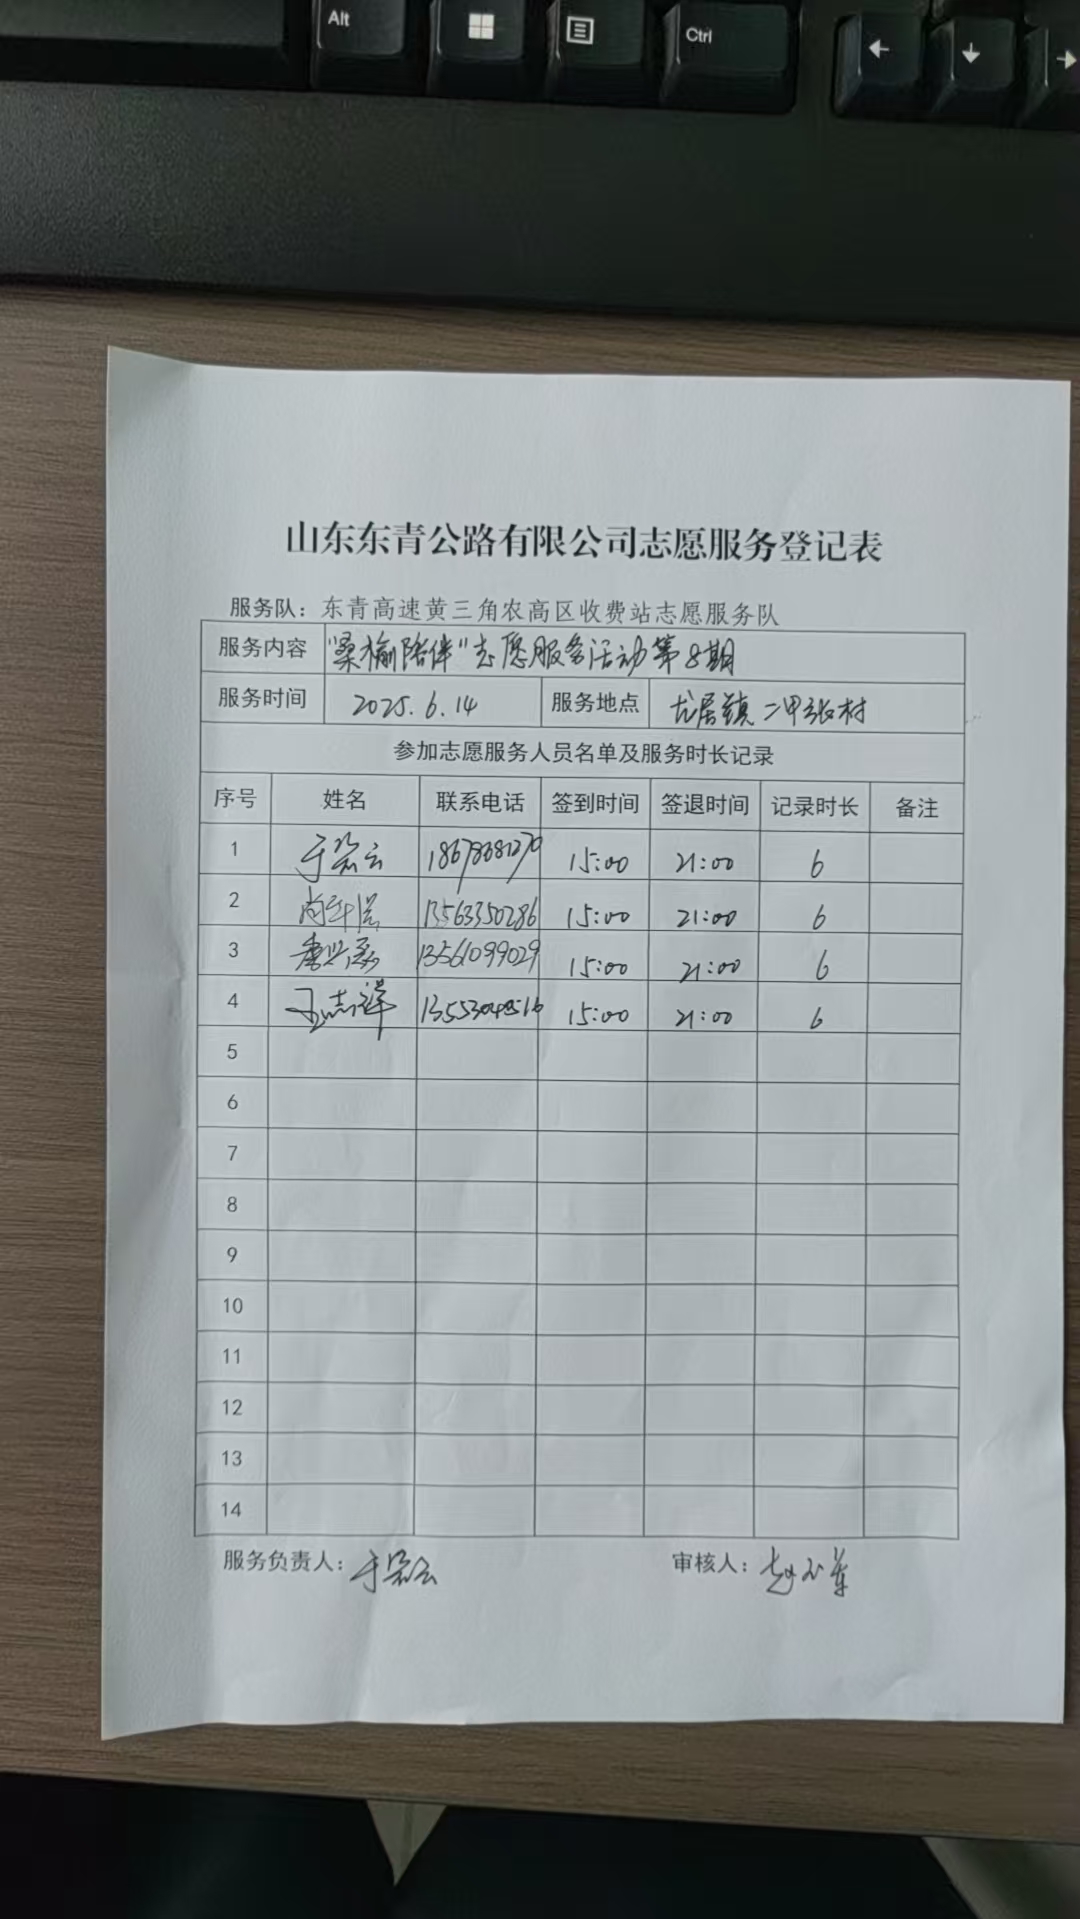 Alt
Ctrl
山东东青公路有限公司志愿服务登记表
服务队：东青高速黄三角农高区收费站志愿服务队
服务内容 "桑榆陪伴"志愿服务活动第8期
服务时间 2025.6.14 服务地点 龙居镇二甲张村
参加志愿服务人员名单及服务时长记录
序号 姓名 联系电话 签到时间 签退时间 记录时长 备注
1 15:00 21:00 6
2 13563350286 15:00 21:00 6
3 13561099029 15:00 21:00 6
4 王志祥 15:00 21:00 6
5
6
7
8
9
10
11
12
13
14
服务负责人： 审核人：